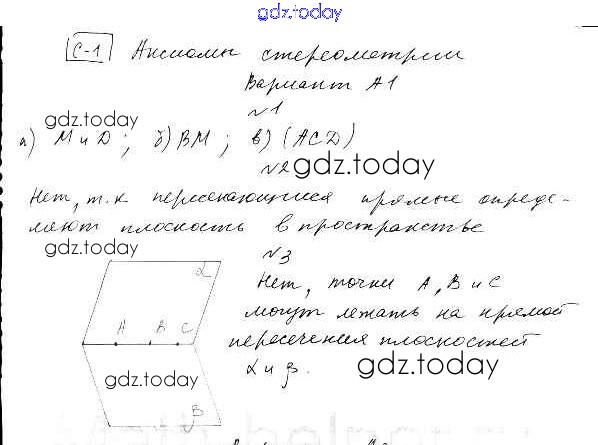 gdz.today
С-1 Аксиомы стереометрии
Вариант А1
№1
gdz.today
а) М и D; б) ВМ; в) (АСD)
№2 gdz.today
Нет, т.к пересекающиеся прямые опреде-
ляют плоскость в пространстве
gdz.today
№3
α
Нет, точки А, В и С
А В С
могут лежать на прямой
пересечения плоскостей
α и β.
gdz.today
gdz.today
β